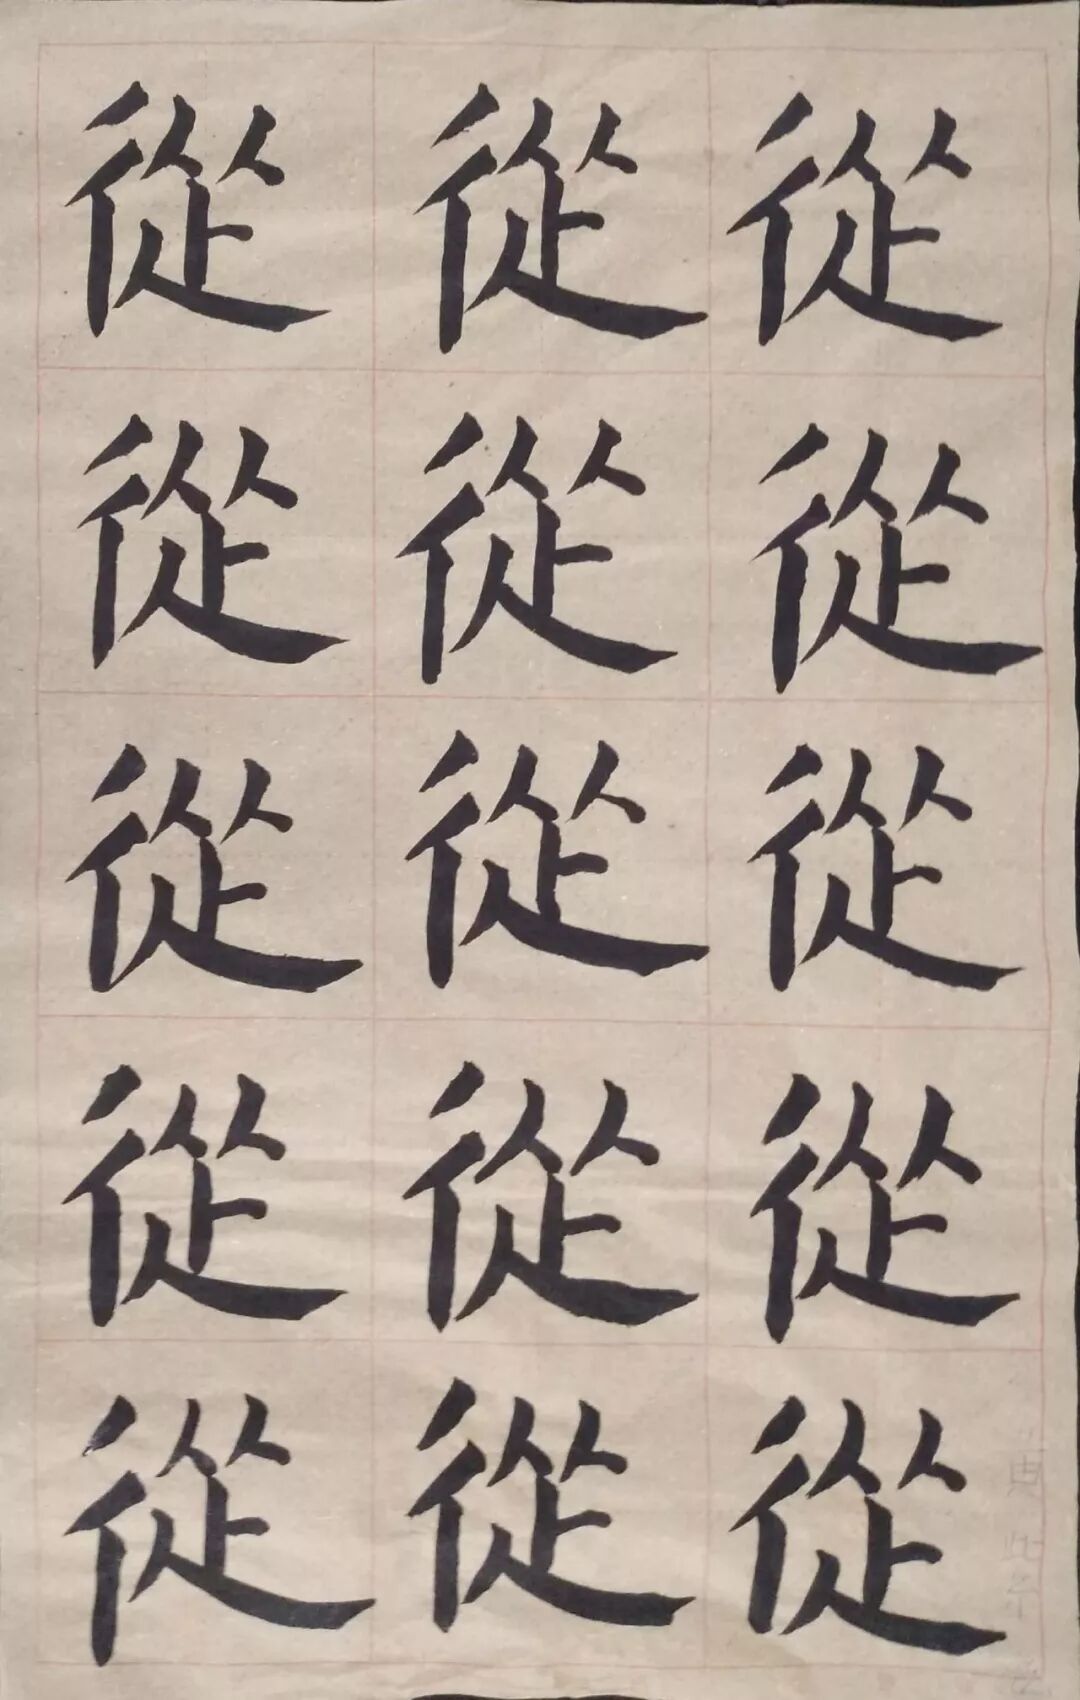 從從從
從從從
從從從
從從從
從從從